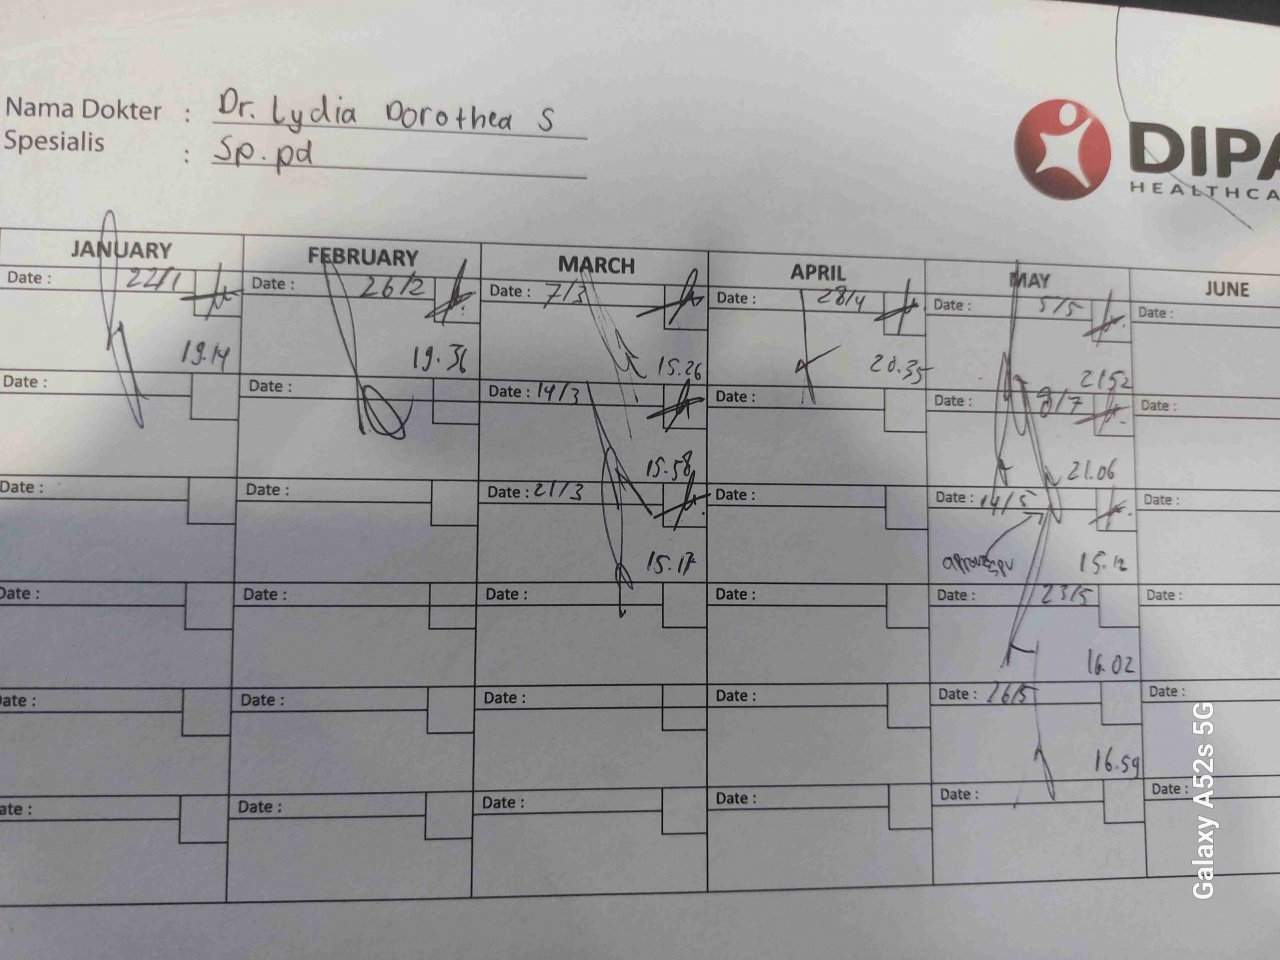 Nama Dokter : Dr. Lydia Dorothea S
Spesialis : Sp.pd
DIPA
HEALTHCA
JANUARY FEBRUARY MARCH APRIL MAY JUNE
Date : 22/1 Date : 26/2 Date : 7/3 Date : 28/4 Date : 5/5 Date :
19.14 19.36 15.26 20.35 2152
Date : Date : Date : 14/3 Date : Date : Date :
15.58 21.06
Date : Date : Date : 21/3 Date : Date : 14/5 Date :
15.17 15.12
Date : Date : Date : Date : Date : 23/5 Date :
16.02
Date : Date : Date : Date : Date : 26/5 Date :
16.59
ate : Date : Date : Date : Date : Date :
Galaxy A52s 5G